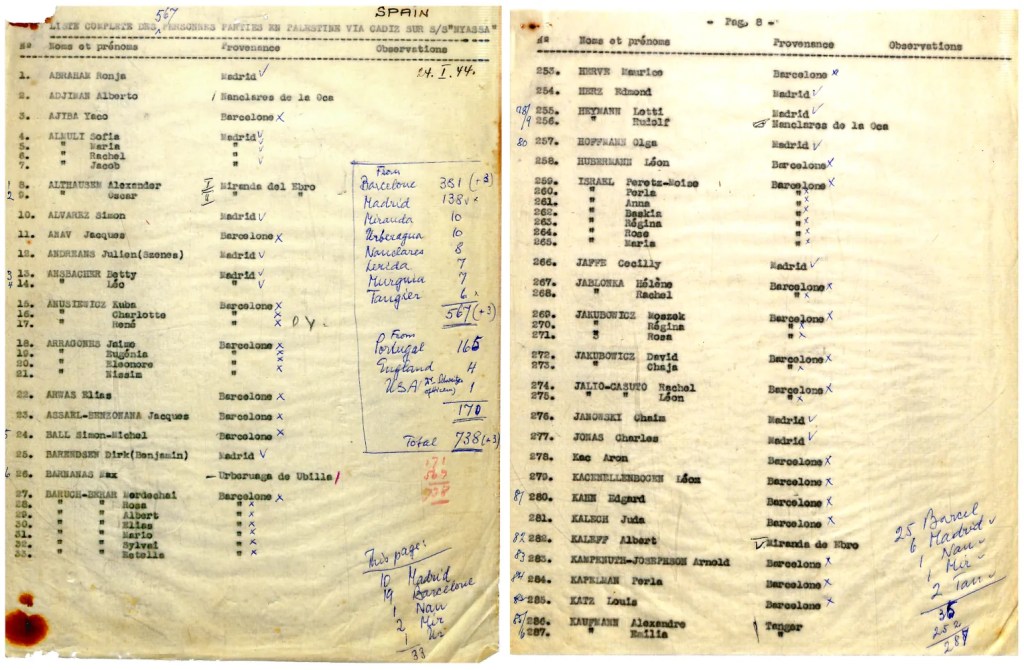 SPAIN
567
LISTE COMPLETE DES PERSONNES PARTIES EN PALESTINE VIA CADIZ SUR S/S"NYASSA"
No Noms et prénoms Provenance Observations
24.I.44.
1. ABRAHAM Ronja Madrid ✓
2. ADJIMAN Alberto Nanclares de la Oca
3. AJYBA Yaco Barcelone x
4. ALMULI Sofia Madrid ✓
5. " Maria " ✓
6. " Rachel " ✓
7. " Jacob " ✓
1 8. ALTHAUSEN Alexander I Miranda del Ebro
2 9. " Oscar II " "
10. ALVAREZ Simon Madrid ✓
11. ARAV Jacques Barcelone x
12. ANDREANS Julien(Szenes) Madrid ✓
3 13. ANSBACHER Betty Madrid ✓
4 14. " Léo " ✓
15. ANUSIEWICZ Kuba Barcelone x
16. " Charlotte " x
17. " René " x
18. ARRAGONES Jaime Barcelone x
19. " Eugénia " x
20. " Eleonore " x
21. " Nissim " x
22. ARWAS Elias Barcelone x
23. ASSAEL-BENZONANA Jacques Barcelone x
5 24. BALL Simon-Michel Barcelone x
25. BARENDSEN Dirk(Benjamin) Madrid ✓
6 26. BARNANAS Max - Urberuaga de Ubilla
27. BARUCH-BEHAR Mordechai Barcelone x
28. " " Rosa " x
29. " " Albert " x
30. " " Elias " x
31. " " Mario " x
32. " " Sylvai " x
33. " " Estella " x
From
Barcelone 381 (+3)
Madrid 138
Miranda 10
Urberagua 10
Nanclares 8
Lerida 7
Murguia 7
Tangier 6
567 (+3)
From
Portugal 165
England 4
USA 1
170
Total 738 (+3)
171
567
738
This page:
10 Madrid
19 Barcelone
1 Nan
2 Mir
1 Ur
33
- Pag. 8 -
No Noms et prénoms Provenance Observations
253. HERVE Maurice Barcelone x
254. HERZ Edmond Madrid ✓
78/ 255. HEYMANN Lotti Madrid ✓
9 256. " Rudolf Nanclares de la Oca
80 257. HOFFMANN Olga Madrid ✓
258. HUBERMANN Léon Barcelone x
259. ISRAEL Peretz-Moise Barcelone x
260. " Perla " x
261. " Anna " x
262. " Baskia " x
263. " Régina " x
264. " Rose " x
265. " Maria " x
266. JAFFE Cecilly Madrid ✓
267. JABLONKA Hélène Barcelone x
268. " Rachel " x
269. JAKUBOWICZ Moszek Barcelone x
270. " Régina " x
271. " Rosa " x
272. JAKUBOWICZ David Barcelone x
273. " Chaja " x
274. JALIO-CASUTO Rachel Barcelone x
275. " " Léon " x
276. JANOWSKI Chaim Madrid ✓
277. JONAS Charles Madrid ✓
278. Kac Aron Barcelone x
279. KACENELLENBOGEN Léon Barcelone x
81 280. KAHN Edgard Barcelone x
281. KALECH Juda Barcelone x
82 282. KALEFF Albert Miranda de Ebro
83 283. KAMPENUTH-JOSEPHSON Arnold Barcelone x
84 284. KAPELMAN Perla Barcelone x
285. KATZ Louis Barcelone x
286. KAUFMANN Alexandre Tanger
287. " Emilia "
25 Barcel
6 Madrid
1 Nan
1 Mir
2 Tan
35
252
287